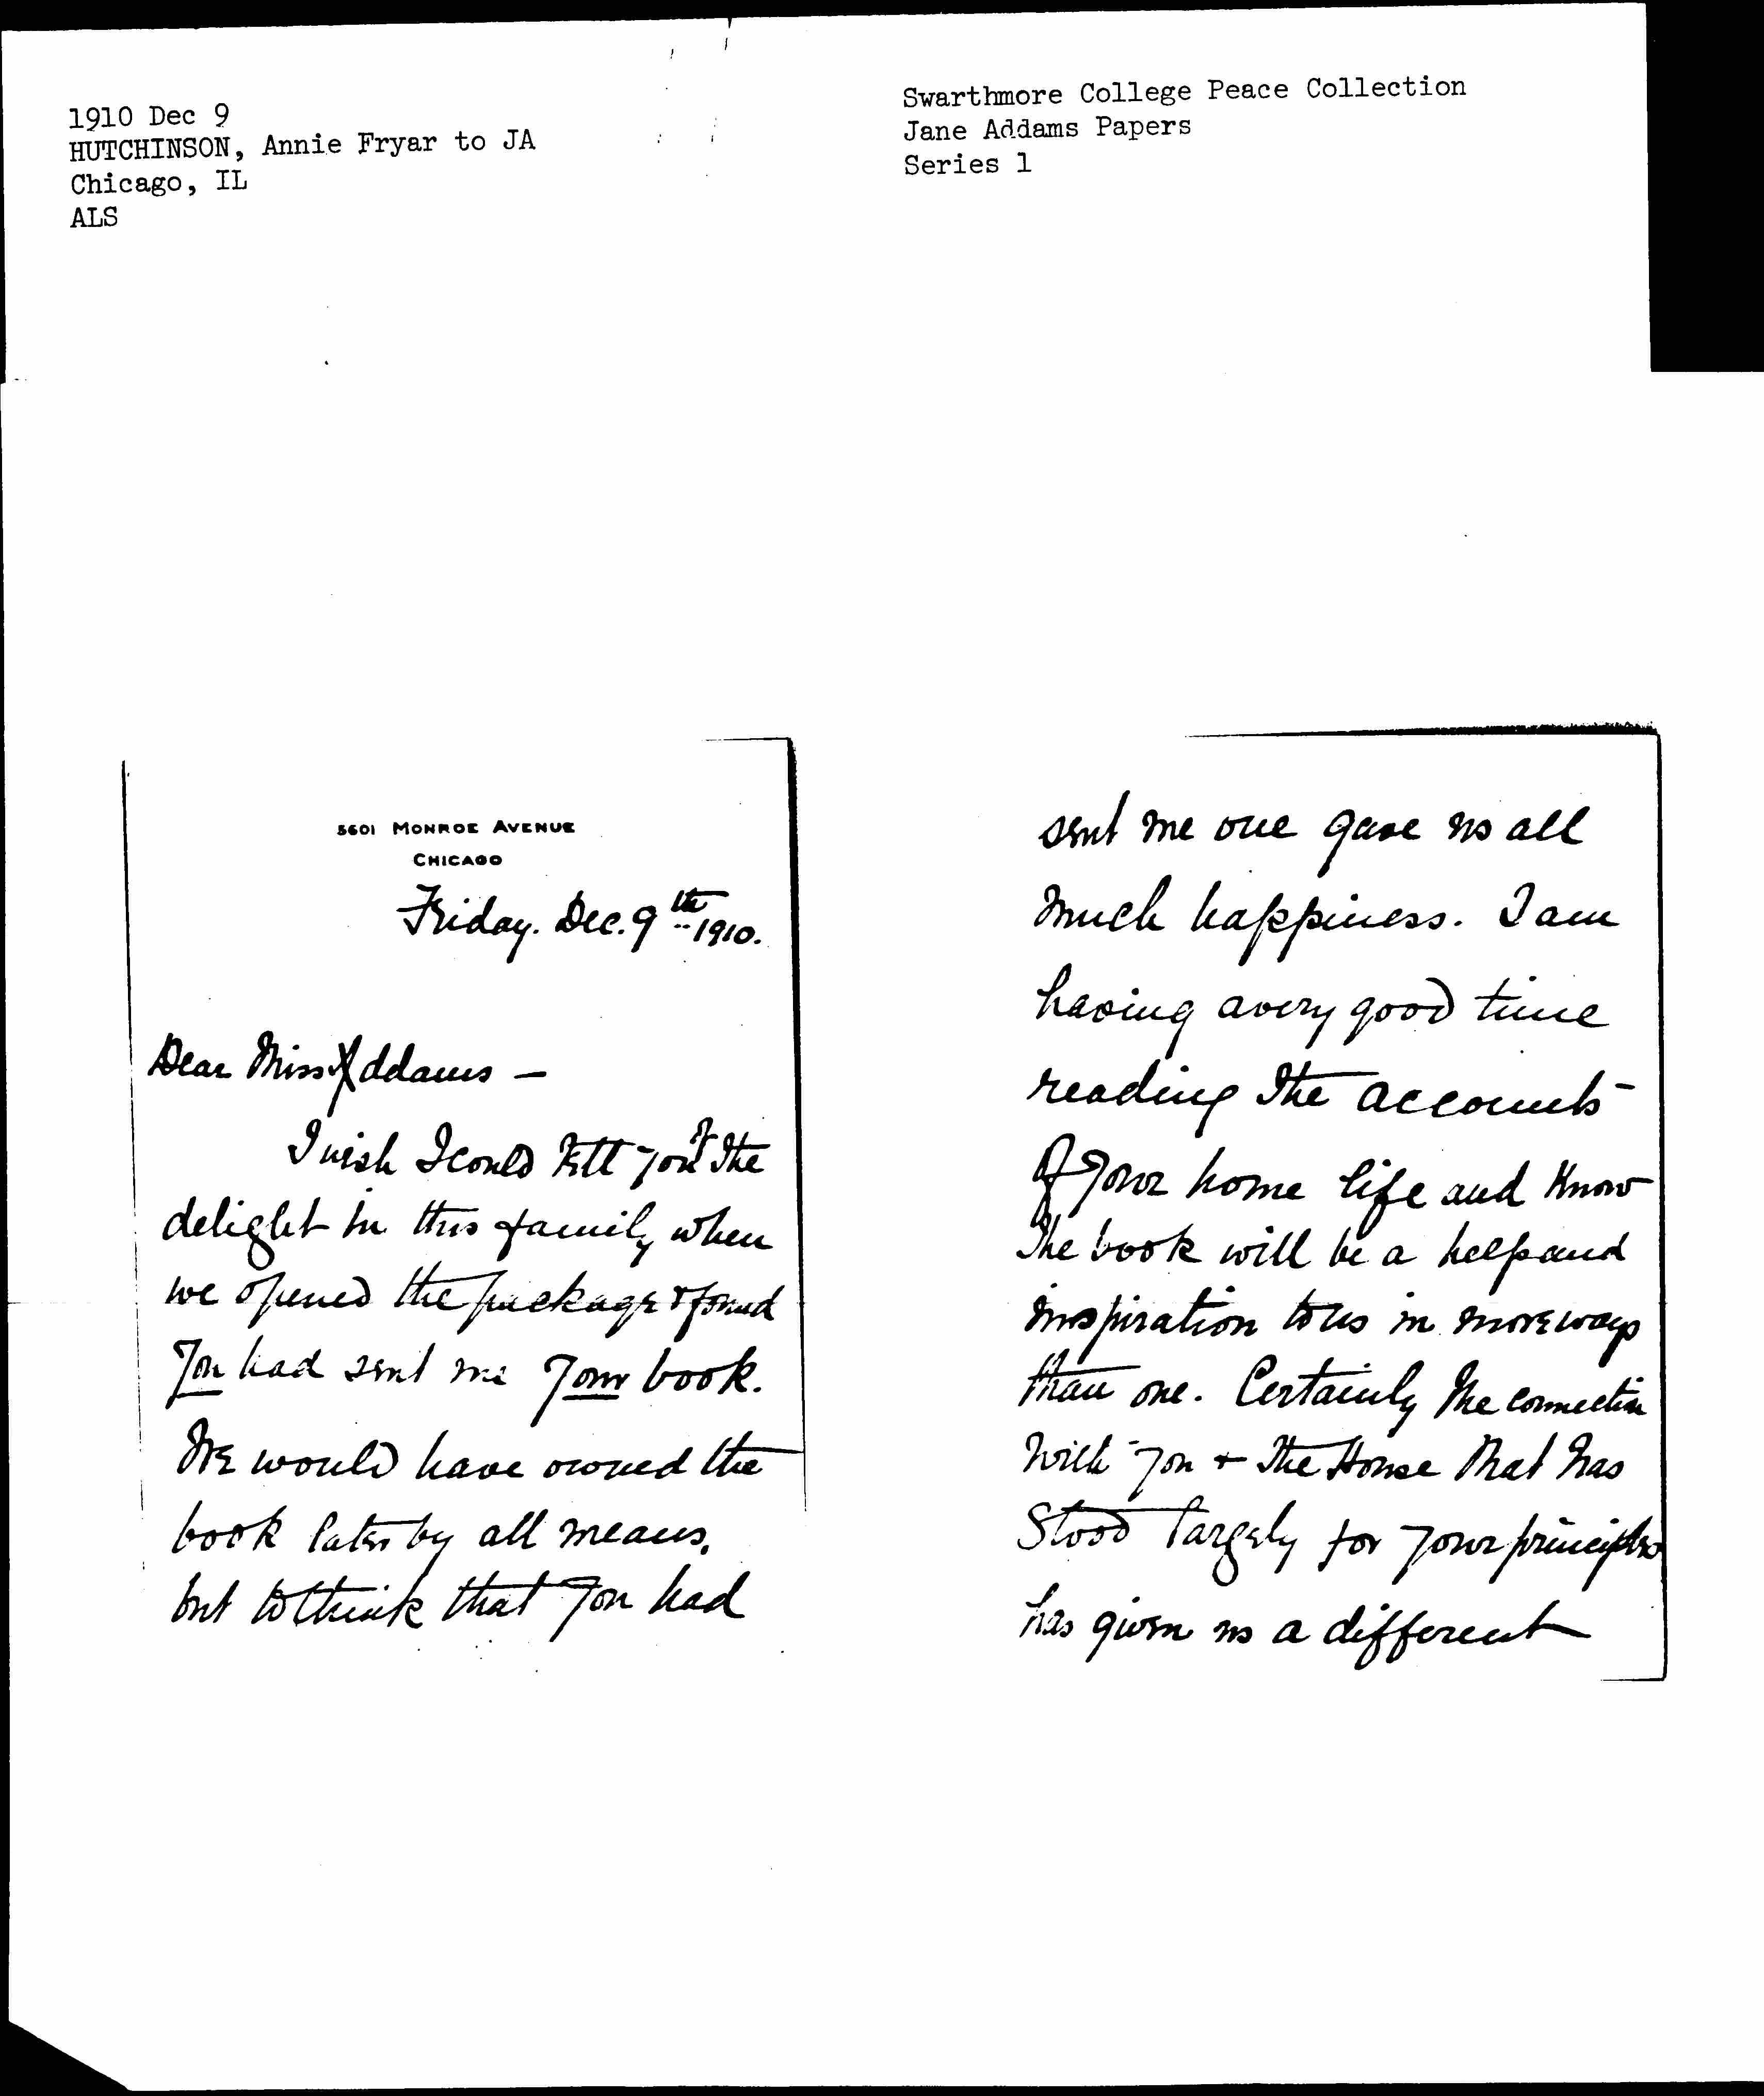 1910 Dec 9
HUTCHINSON, Annie Fryar to JA
Chicago, IL
ALS
Swarthmore College Peace Collection
Jane Addams Papers
Series 1
5601 MONROE AVENUE
CHICAGO
Friday. Dec. 9th 1910.
Dear Miss Addams —
I wish I could tell you of the
delight in this family when
we opened the package & found
You had sent me your book.
We would have owned the
book later by all means,
but to think that you had
sent me one gave us all
much happiness. I am
having a very good time
reading the accounts
of your home life and know
the book will be a help and
inspiration to us in more ways
than one. Certainly the connection
with you + the House that has
stood largely for your principles
has given us a different